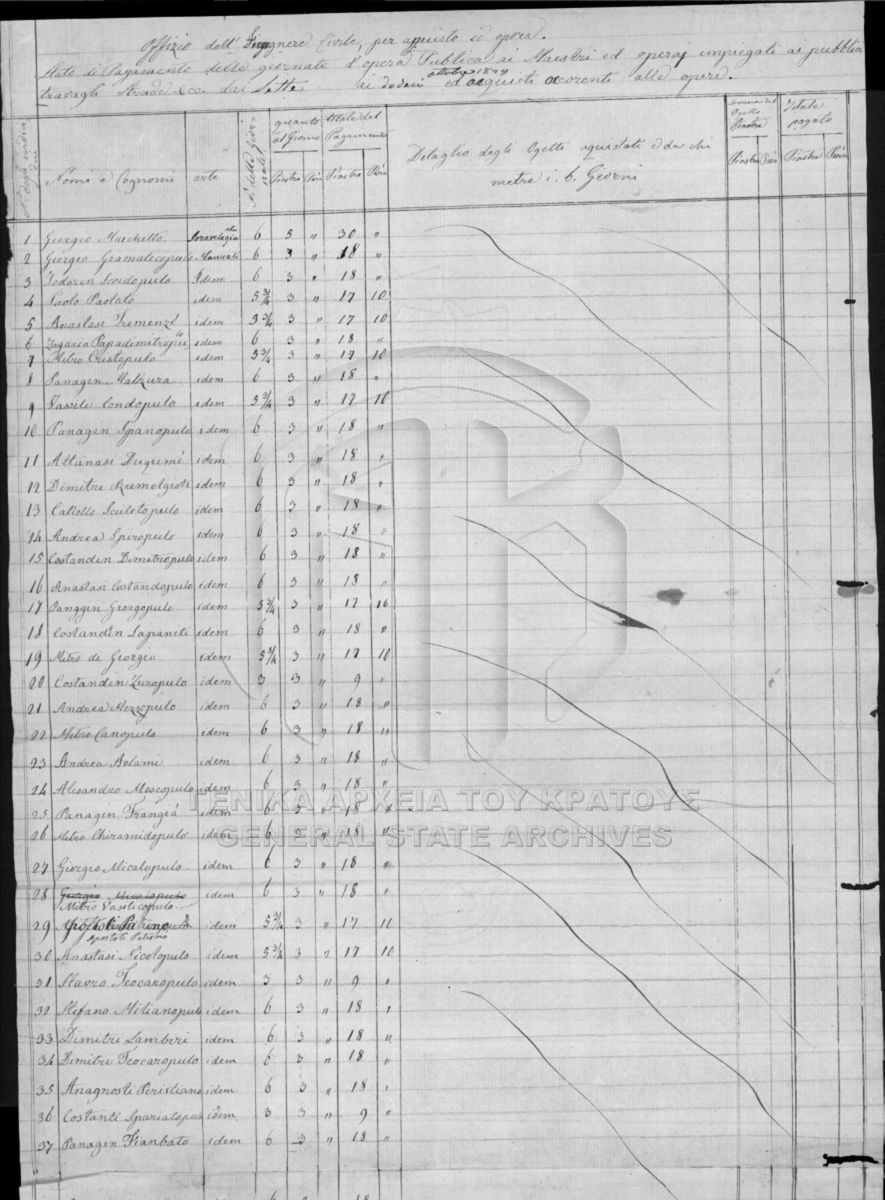 Offizio dell' Ingegnere Civile, per aquisto ed opera.
Nota di Pagamento delle giornate d'opera Publica ai Maestri ed operaj impiegati ai pubblici
travagli Strade &ca dai Sette ai dodeci ottobre 1829 ed acquisti ocorenti alle opere.
Nomi e Cognomi arte N. delle Giornate quanto al Giorno totale del Pagamento Detaglio degli Ogetti aquistati e da chi Somma del Ogetto Piastre Totale pagato
Piastre Parà Piastre Parà metre i. 6. Giorni Piastre Parà Piastre Parà
1 Giorgio Marchetto 6 5 " 30 "
2 Giorgio Gramaticopulo Manuali 6 3 " 18 "
3 Todorin Scordopulo Idem 6 3 " 18 "
4 Paolo Paolato idem 5 3/4 3 " 17 10
5 Anastasi Tremenzi idem 5 3/4 3 " 17 10
6 Zagarea Papadimitropulo idem 6 3 " 18 "
7 Mitro Cristopulo idem 5 3/4 3 " 17 10
8 Panagin Matzura idem 6 3 " 18 "
9 Vassili Condopulo idem 5 3/4 3 " 17 10
10 Panagin Spanopulo idem 6 3 " 18 "
11 Attanasi Duqumè idem 6 3 " 18 "
12 Dimitri Rumelgioti idem 6 3 " 18 "
13 Catiello Sculotopulo idem 6 3 " 18 "
14 Andrea Spiropulo idem 6 3 " 18 "
15 Costandin Dimitropulo idem 6 3 " 18 "
16 Anastasi Costandopulo idem 6 3 " 18 "
17 Panggin Giorgopulo idem 5 3/4 3 " 17 10
18 Costandin Lapaniti idem 6 3 " 18 "
19 Mitro di Giorgio idem 5 3/4 3 " 17 10
20 Costandin Zuropulo idem 3 3 " 9 "
21 Andrea Mezzopulo idem 6 3 " 18 "
22 Mitro Canopulo idem 6 3 " 18 "
23 Andrea Aslami idem 6 3 " 18 "
24 Alesandro Moscopulo idem 6 3 " 18 "
25 Panagin Frangià idem 6 3 " 18 "
26 Mitro Chiramidopulo idem 6 3 " 18 "
27 Giorgio Micalopulo idem 6 3 " 18 "
28 Giorgio Micalopulo idem 6 3 " 18 "
Mitro Vasilicopulo
29 Apostoli Patrino idem 5 3/4 3 " 17 10
Apostoli Patrino
30 Anastasi Nicolopulo idem 5 3/4 3 " 17 10
31 Stavro Teocaropulo idem 3 3 " 9 "
32 Stefano Milianopulo idem 6 3 " 18 "
33 Dimitri Lambiri idem 6 3 " 18 "
34 Dimitri Teocaropulo idem 6 3 " 18 "
35 Anagnosti Peristiano idem 6 3 " 18 "
36 Costanti Spariatopulo idem 3 3 " 9 "
37 Panagin Fianbato idem 6 3 " 18 "
ΓΕΝΙΚΑ ΑΡΧΕΙΑ ΤΟΥ ΚΡΑΤΟΥΣ
GENERAL STATE ARCHIVES